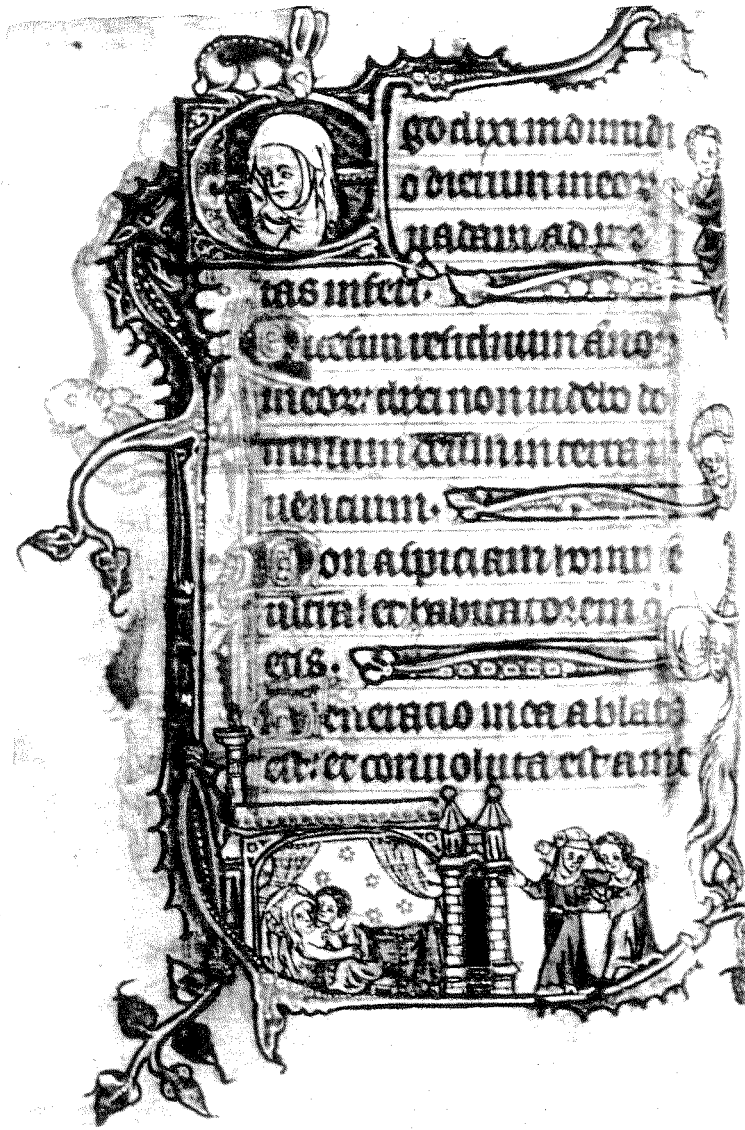 Ego dixi in dimidi
o dierum meor
uadam ad por
tas inferi.
Quesiui residuum annor
meor: dixi non uidebo do
minum deum in terra ui
uencium.
Non aspiciam homine
ultra: et habitatorem q
etis.
Generacio mea ablata
est: et conuoluta est a me